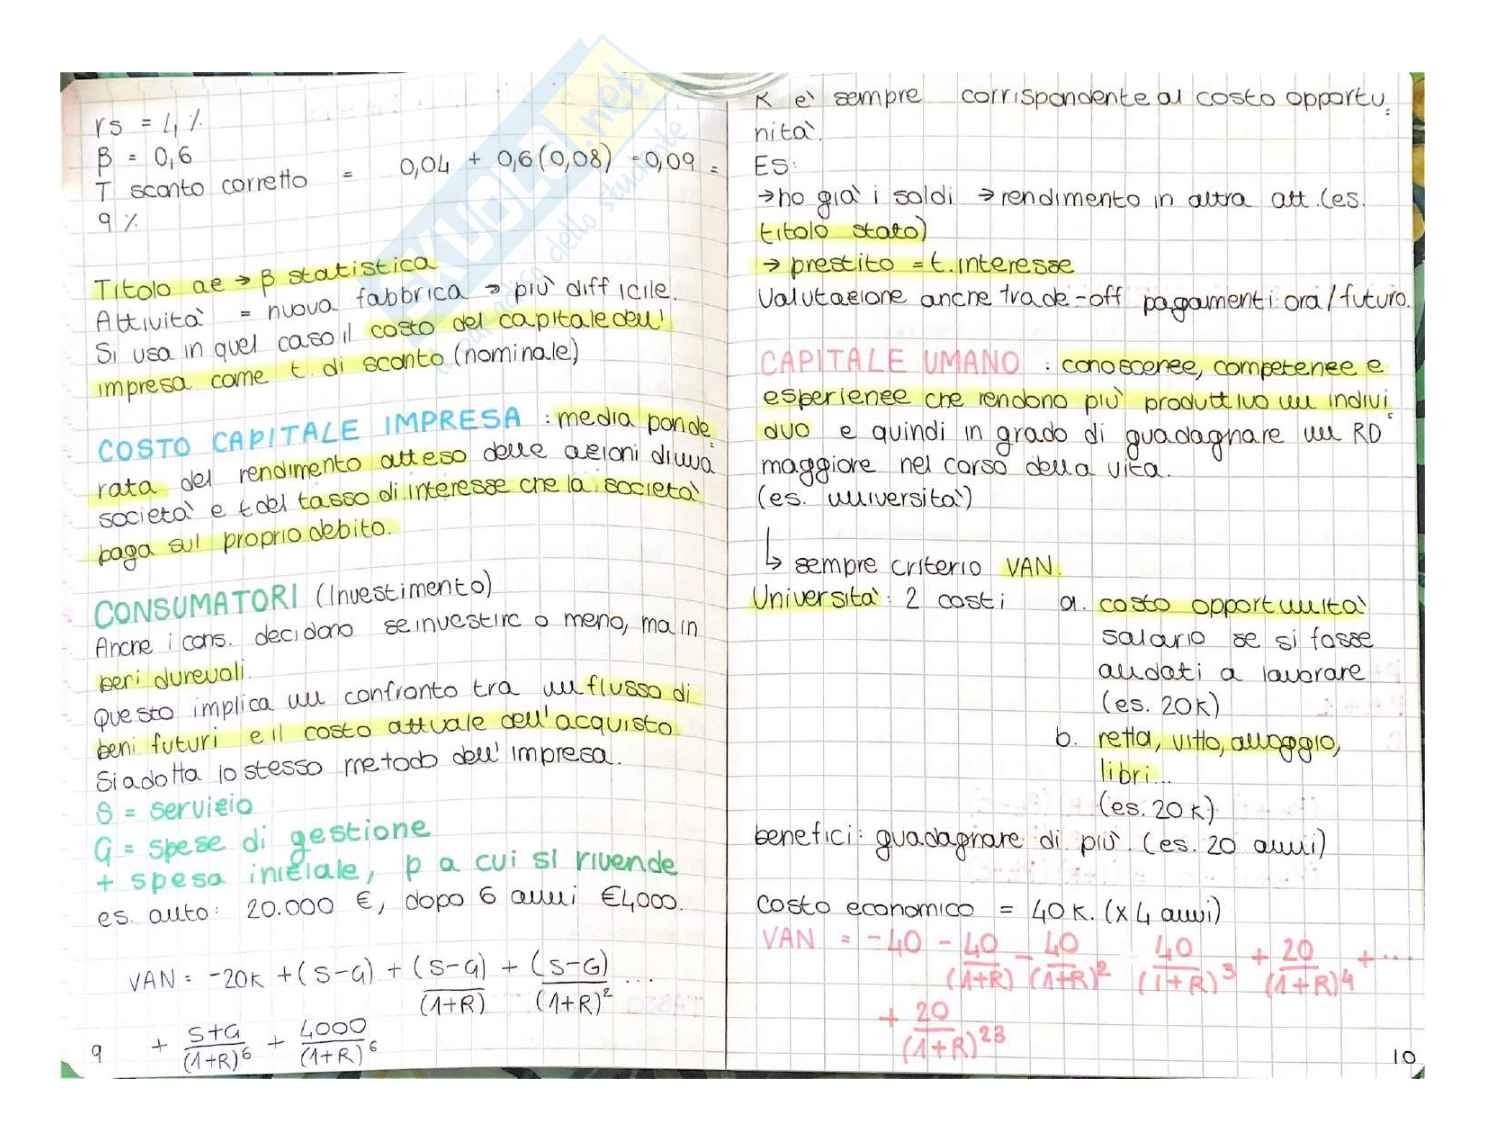 rs = 4%
β = 0,6
T sconto corretto = 0,04 + 0,6(0,08) = 0,09 =
9%
Titolo az → β statistica
Attività = nuova fabbrica → più difficile.
Si usa in quel caso il costo del capitale dell'
impresa come t. di sconto (nominale)
COSTO CAPITALE IMPRESA : media ponde
rata del rendimento atteso delle azioni di una
società e t del tasso di interesse che la società
paga sul proprio debito.
CONSUMATORI (Investimento)
Anche i cons. decidono se investire o meno, ma in
beni durevoli.
Questo implica un confronto tra un flusso di
beni futuri e il costo attuale dell'acquisto
Si adotta lo stesso metodo dell'impresa.
S = servizio
G = spese di gestione
+ spesa iniziale, p a cui si rivende
es. auto: 20.000 €, dopo 6 anni €4000.
VAN = -20K + (S-G) + (S-G)/(1+R) + (S-G)/(1+R)² ...
+ S+G/(1+R)⁶ + 4000/(1+R)⁶
9
K è sempre corrispondente al costo opportu
nità.
ES:
→ho già i soldi →rendimento in altra att. (es.
titolo stato)
→ prestito = t. interesse
Valutazione anche trade-off pagamenti ora/futuro.
CAPITALE UMANO : conoscenze, competenze e
esperienze che rendono più produttivo un indivi
duo e quindi in grado di guadagnare un RD
maggiore nel corso della vita.
(es. università)
↳ sempre criterio VAN.
Università: 2 costi a. costo opportunità
salario se si fosse
andati a lavorare
(es. 20K)
b. retta, vitto, alloggio,
libri...
(es. 20K)
benefici: guadagnare di più. (es. 20 anni)
costo economico = 40K. (x 4 anni)
VAN = -40 - 40/(1+R) - 40/(1+R)² 40/(1+R)³ + 20/(1+R)4 + ...
+ 20/(1+R)²³
10
SKUOLA.net